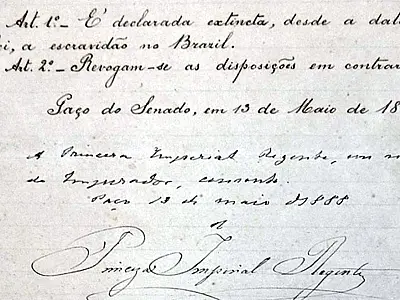 Art. 1º — É declarada extincta, desde a data
ei, a escravidão no Brazil.
Art. 2º — Revogam-se as disposições em contrar
Paço do Senado, em 13 de Maio de 18
A Princeza Imperial Regente, em n
do Imperador, consente.
Paço 13 de maio de 1888
Princeza Imperial Regente